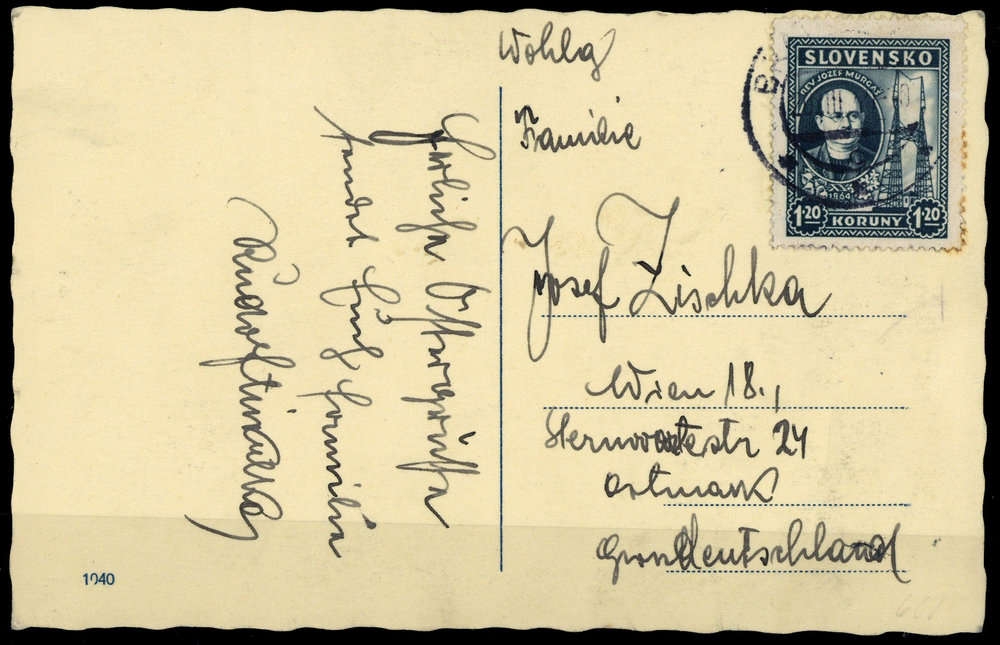 Wohlg
Familie
Josef Zischka
Wien 18.,
Sternwartestr 24
Ostmark
Grossdeutschland
SLOVENSKO
REV. JOZEF MURGAŠ
1864
1·20 KORUNY 1·20
Herzliche Ostergrüsse
sendet Euch Familie
1040